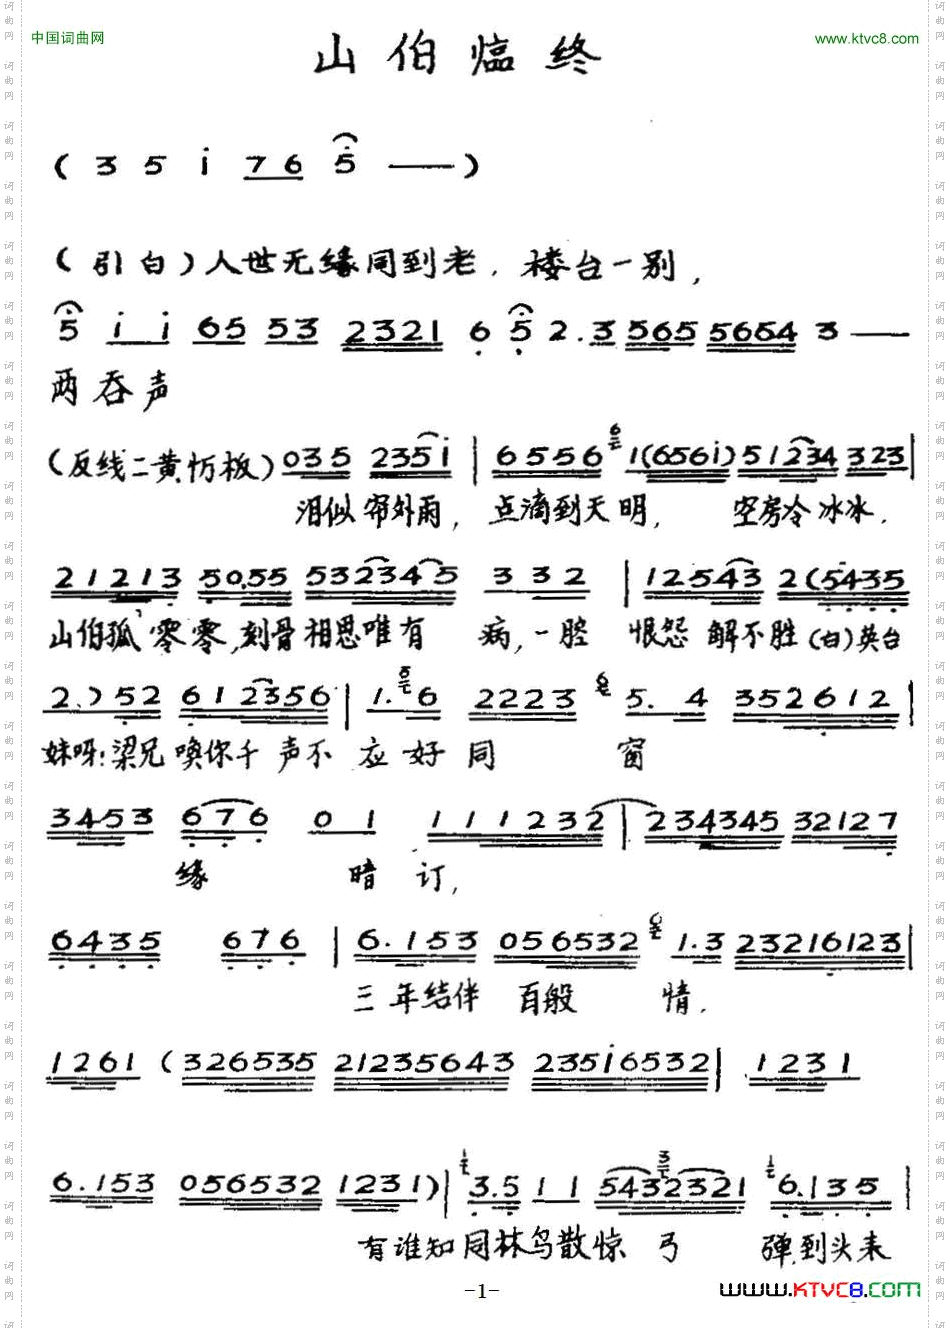 中国词曲网
www.ktvc8.com
山伯临终
( 3 5 i 7 6 5 —— )
(引白)人世无缘同到老.楼台一别,
5 i i 65 53 2321 6 5 2.3 565 5654 3 ——
两吞声
(反线二黄忨板) 035 235i | 6556 1(656i) 51234 323 |
泪似帘外雨,点滴到天明,空房冷冰冰.
21213 50.55 532345 3 32 | 12543 2(5435
山伯孤零零,刻骨相思唯有病,一腔恨怨解不胜(白)英台
2.) 52 612356 | 1.6 2223 5.4 352612 |
妹呀:梁兄唤你千声不应好同窗
3453 676 01 111232 | 234345 32127
缘暗订,
6435 676 | 6.153 056532 1.3 23216123 |
三年结伴百般情.
1261 (326535 21235643 235i6532 | 1231
6.153 056532 1231) | 3.5 11 5432321 6.135 |
有谁知同林鸟散惊弓弹.到头来
-1-
www.KTVC8.COM